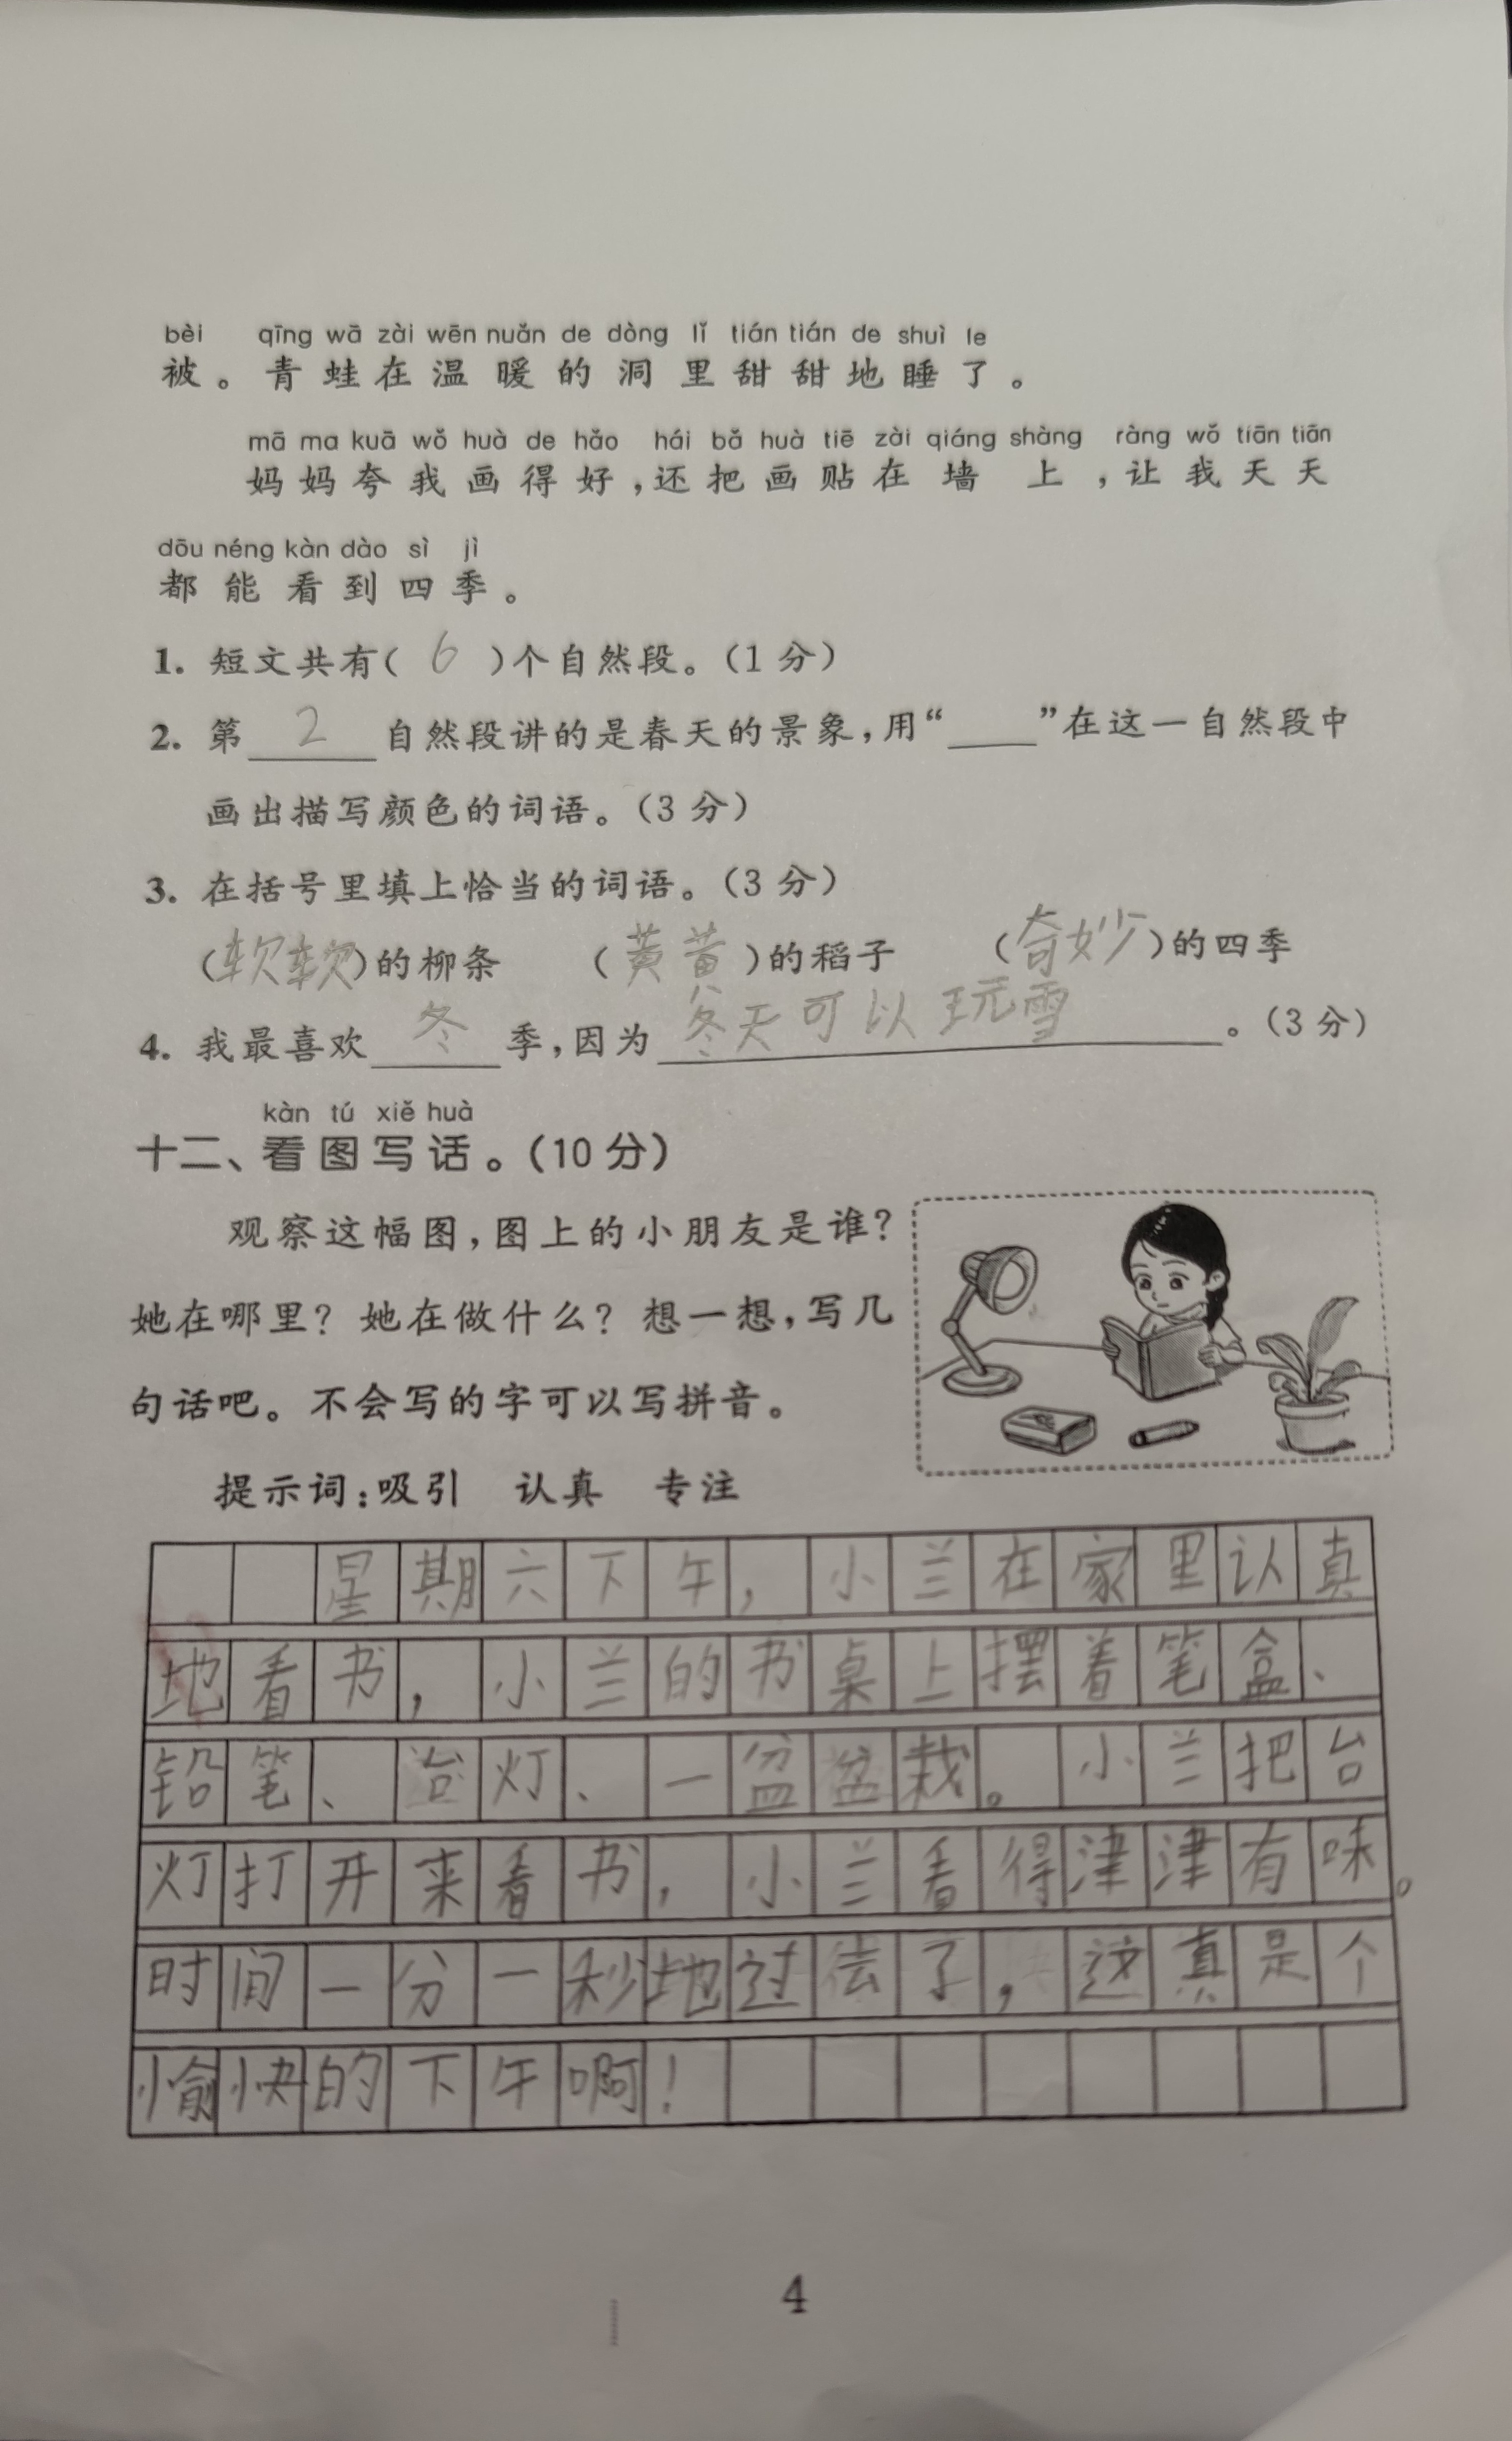 bèi qīng wā zài wēn nuǎn de dòng lǐ tián tián de shuì le
被。青蛙在温暖的洞里甜甜地睡了。
mā ma kuā wǒ huà de hǎo hái bǎ huà tiē zài qiáng shàng ràng wǒ tiān tiān
妈妈夸我画得好,还把画贴在墙上,让我天天
dōu néng kàn dào sì jì
都能看到四季。
1. 短文共有( 6 )个自然段。(1分)
2. 第 2 自然段讲的是春天的景象,用“____”在这一自然段中
画出描写颜色的词语。(3分)
3. 在括号里填上恰当的词语。(3分)
(软软)的柳条 (黄黄)的稻子 (奇妙)的四季
4. 我最喜欢 冬 季,因为 冬天可以玩雪 。(3分)
kàn tú xiě huà
十二、看图写话。(10分)
观察这幅图,图上的小朋友是谁?
她在哪里?她在做什么?想一想,写几
句话吧。不会写的字可以写拼音。
提示词:吸引 认真 专注
星期六下午,小兰在家里认真
地看书,小兰的书桌上摆着笔盒、
铅笔、台灯、一盆盆栽。小兰把台
灯打开来看书,小兰看得津津有味。
时间一分一秒地过去了,这真是个
愉快的下午啊!
4